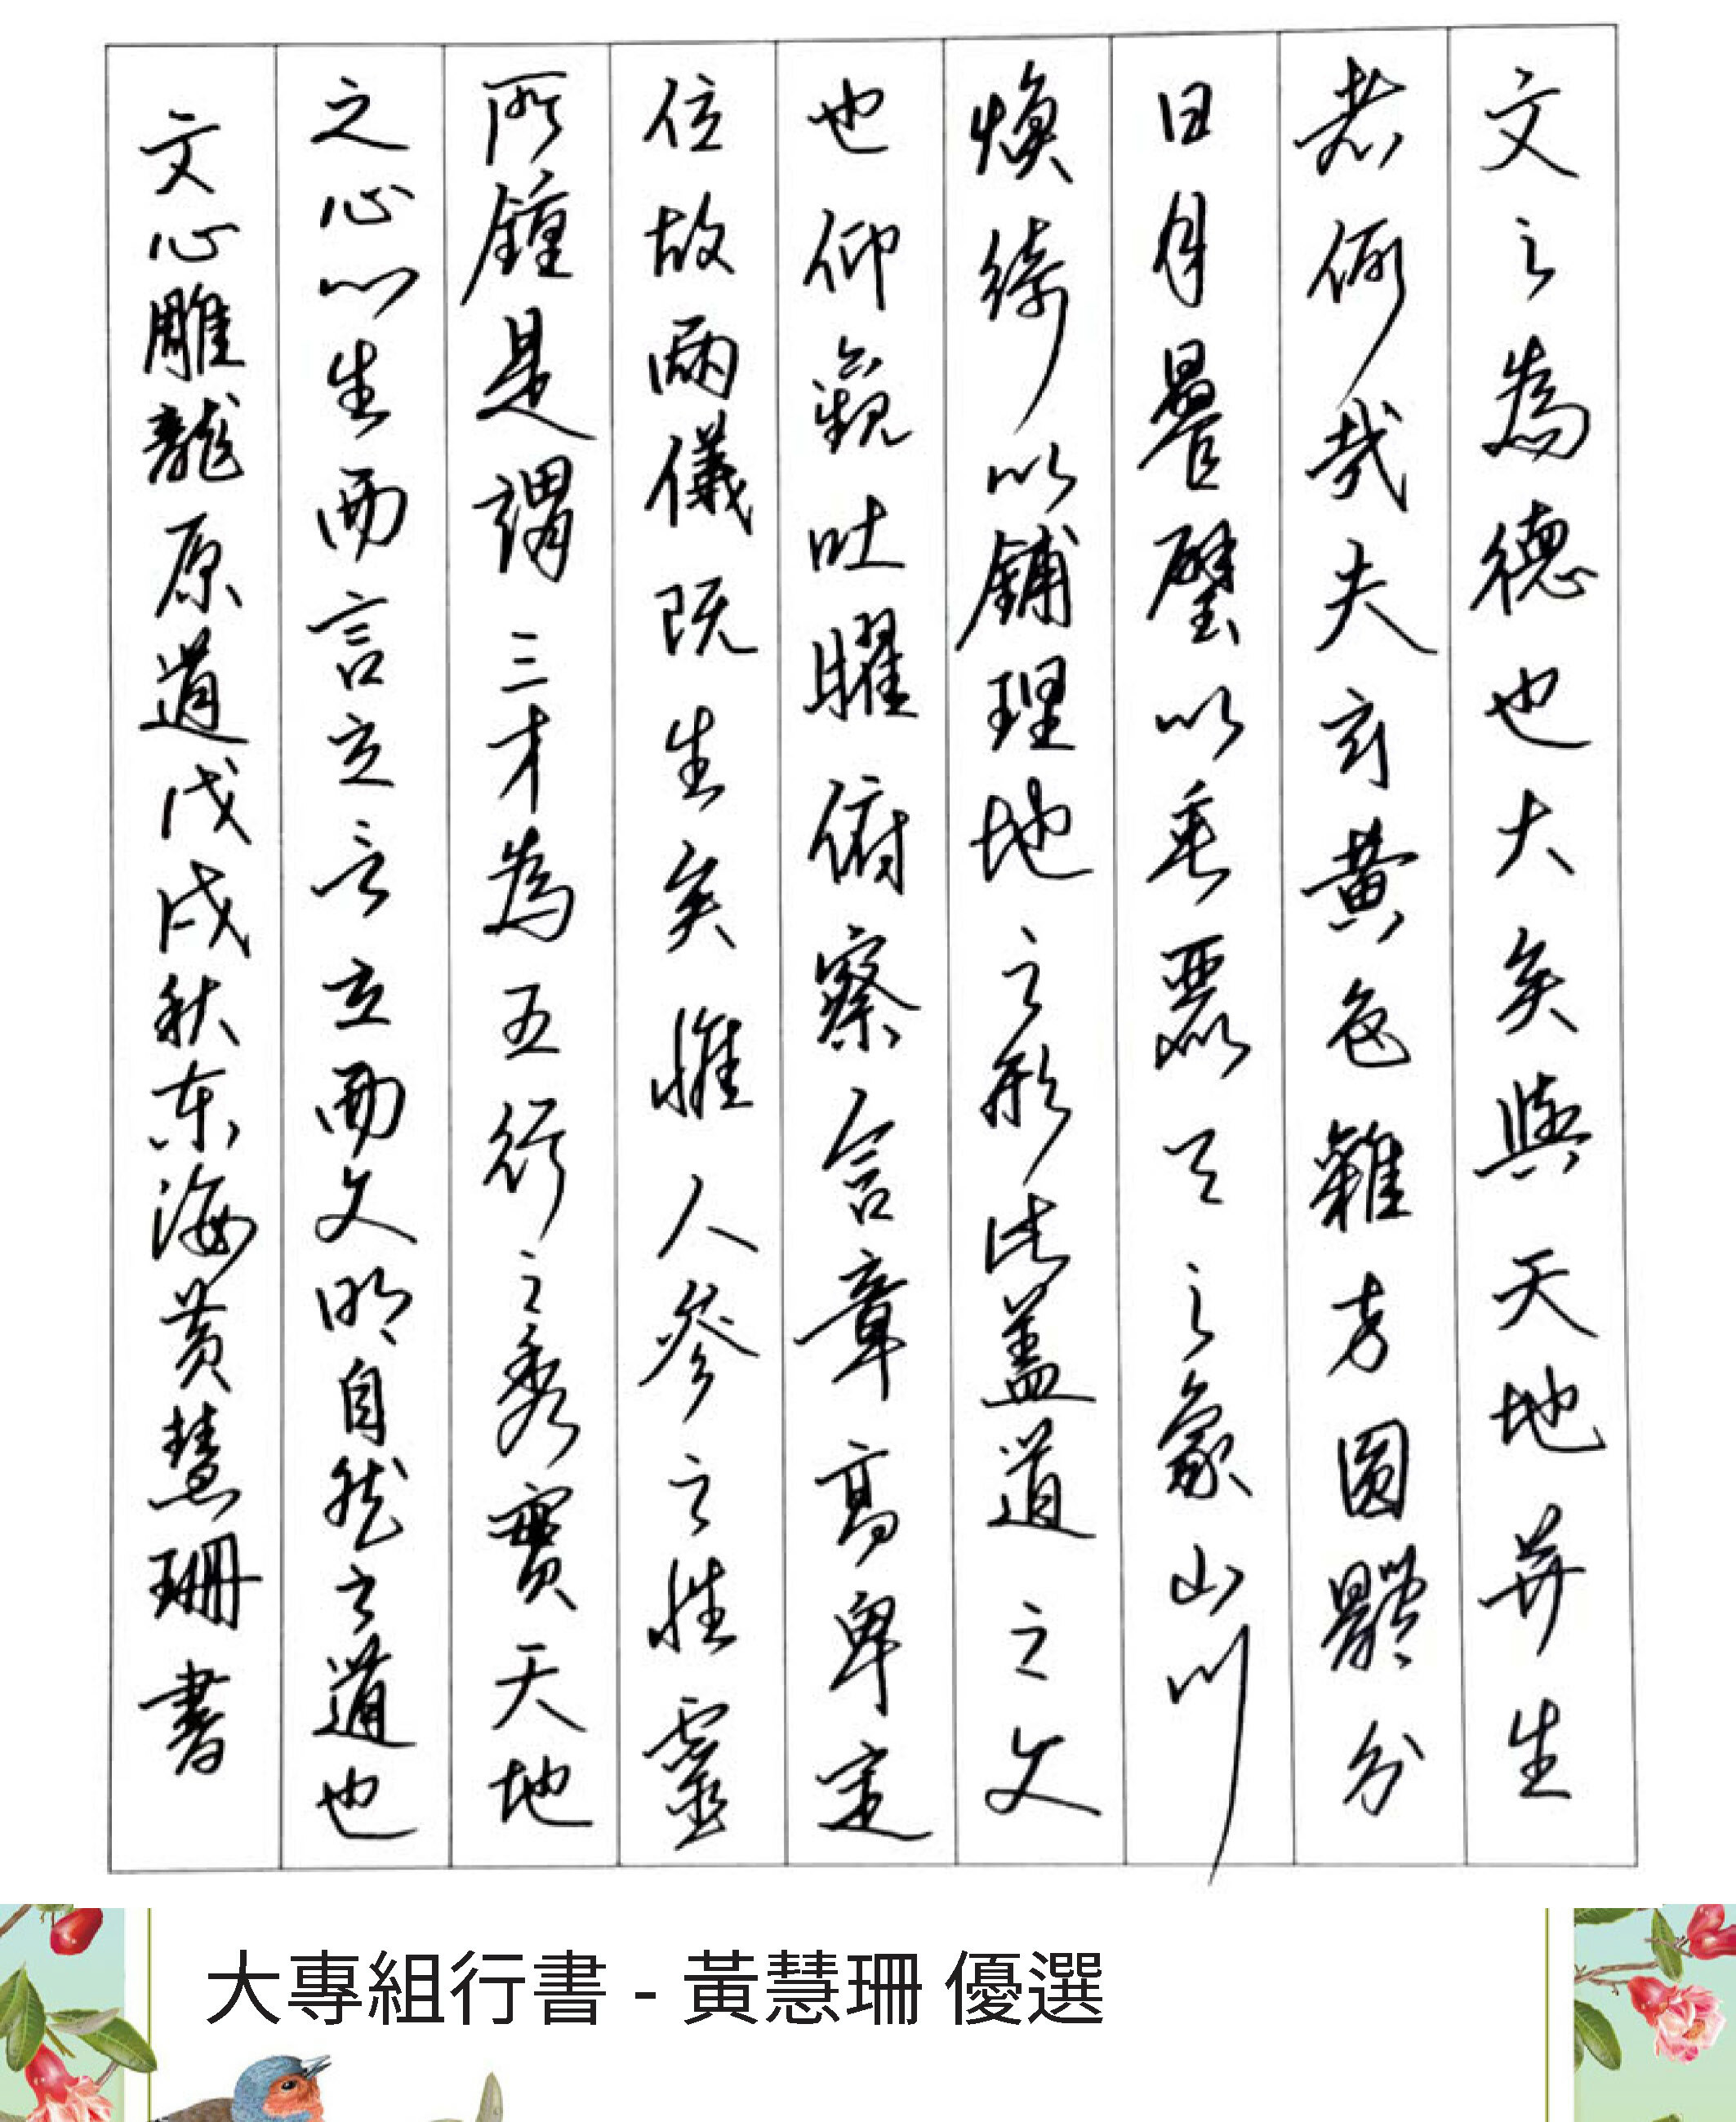 文之為德也大矣與天地並生
者何哉夫玄黃色雜方圓體分
日月疊璧以垂麗天之象山川
煥綺以鋪理地之形此蓋道之文
也仰觀吐曜俯察含章高卑定
位故兩儀既生矣惟人參之性靈
所鍾是謂三才為五行之秀實天地
之心心生而言立言立而文明自然之道也
文心雕龍原道戊戌秋東海黃慧珊書
大專組行書 - 黃慧珊 優選